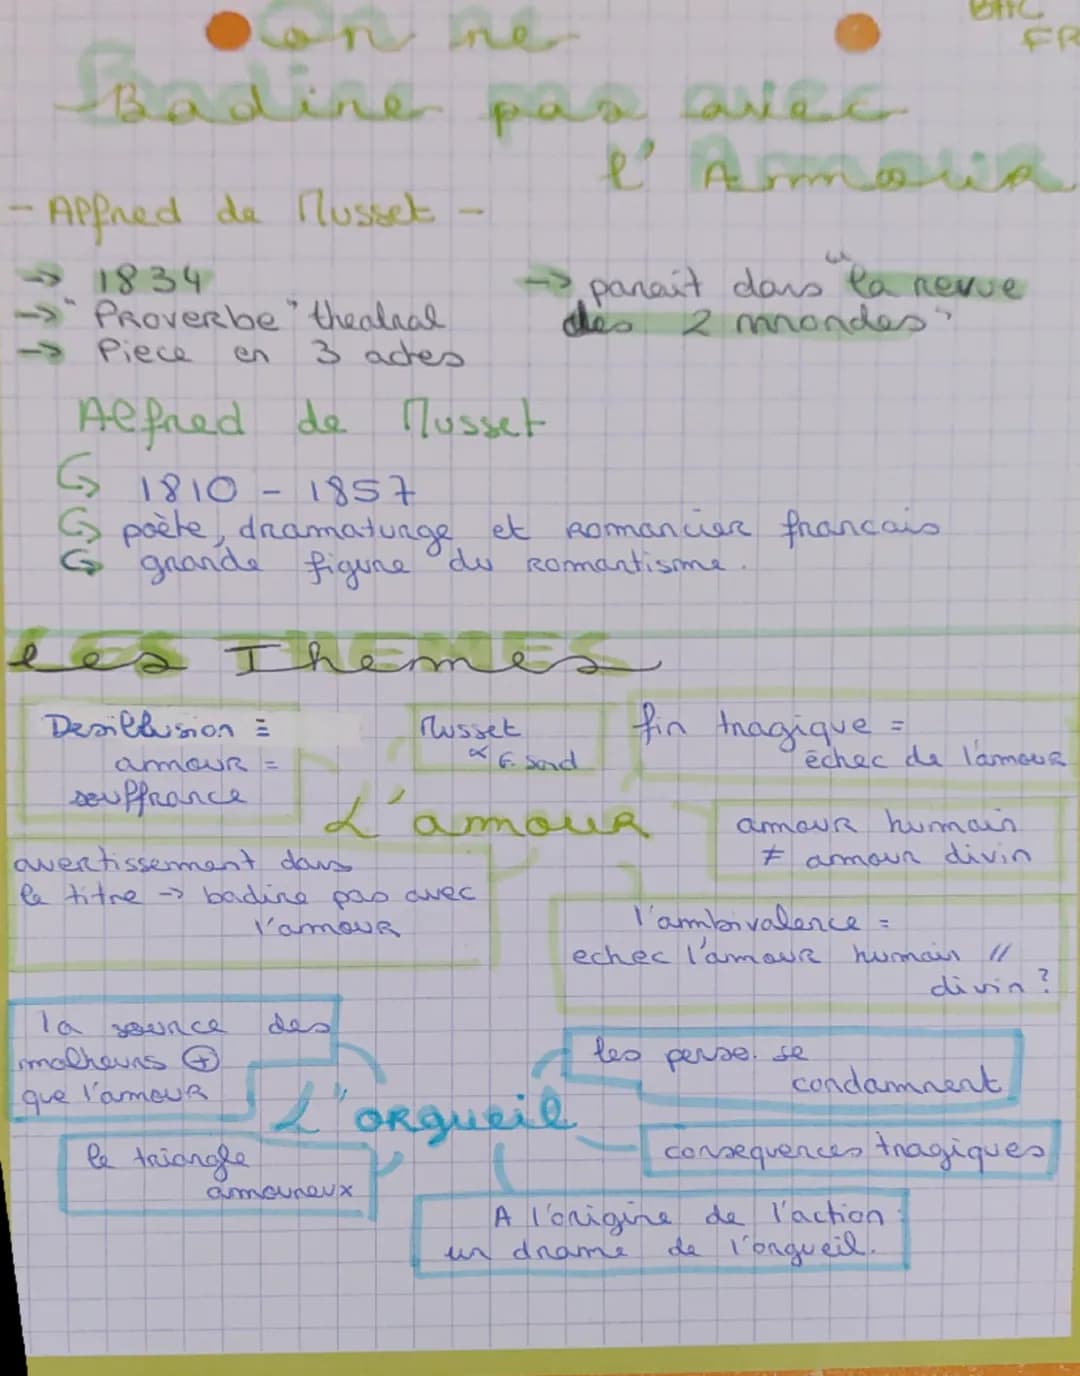 BAC
FR
On ne
Badine pas avec
l'Amour
- Alfred de Musset -
→ 1834
→ "Proverbe" theatral
→ Piece en 3 actes
→ parait dans "la revue
des 2 mondes"
Alfred de Musset
↪ 1810 - 1857
↪ poète, dramaturge et romancier francais
↪ grande figure du romantisme.
Les Themes
Desillusion =
amour =
souffrance
Musset
& G. Sand
fin tragique =
échec de l'amour
L'amour
amour humain
≠ amour divin
avertissement dans
le titre → badine pas avec
l'amour
l'ambivalence =
echec l'amour humain //
divin ?
la source des
malheurs ⊕
que l'amour
les perso. se
condamnent
L'orgueil
le triangle
amoureux
consequences tragiques
A l'origine de l'action :
un drame de l'orgueil.